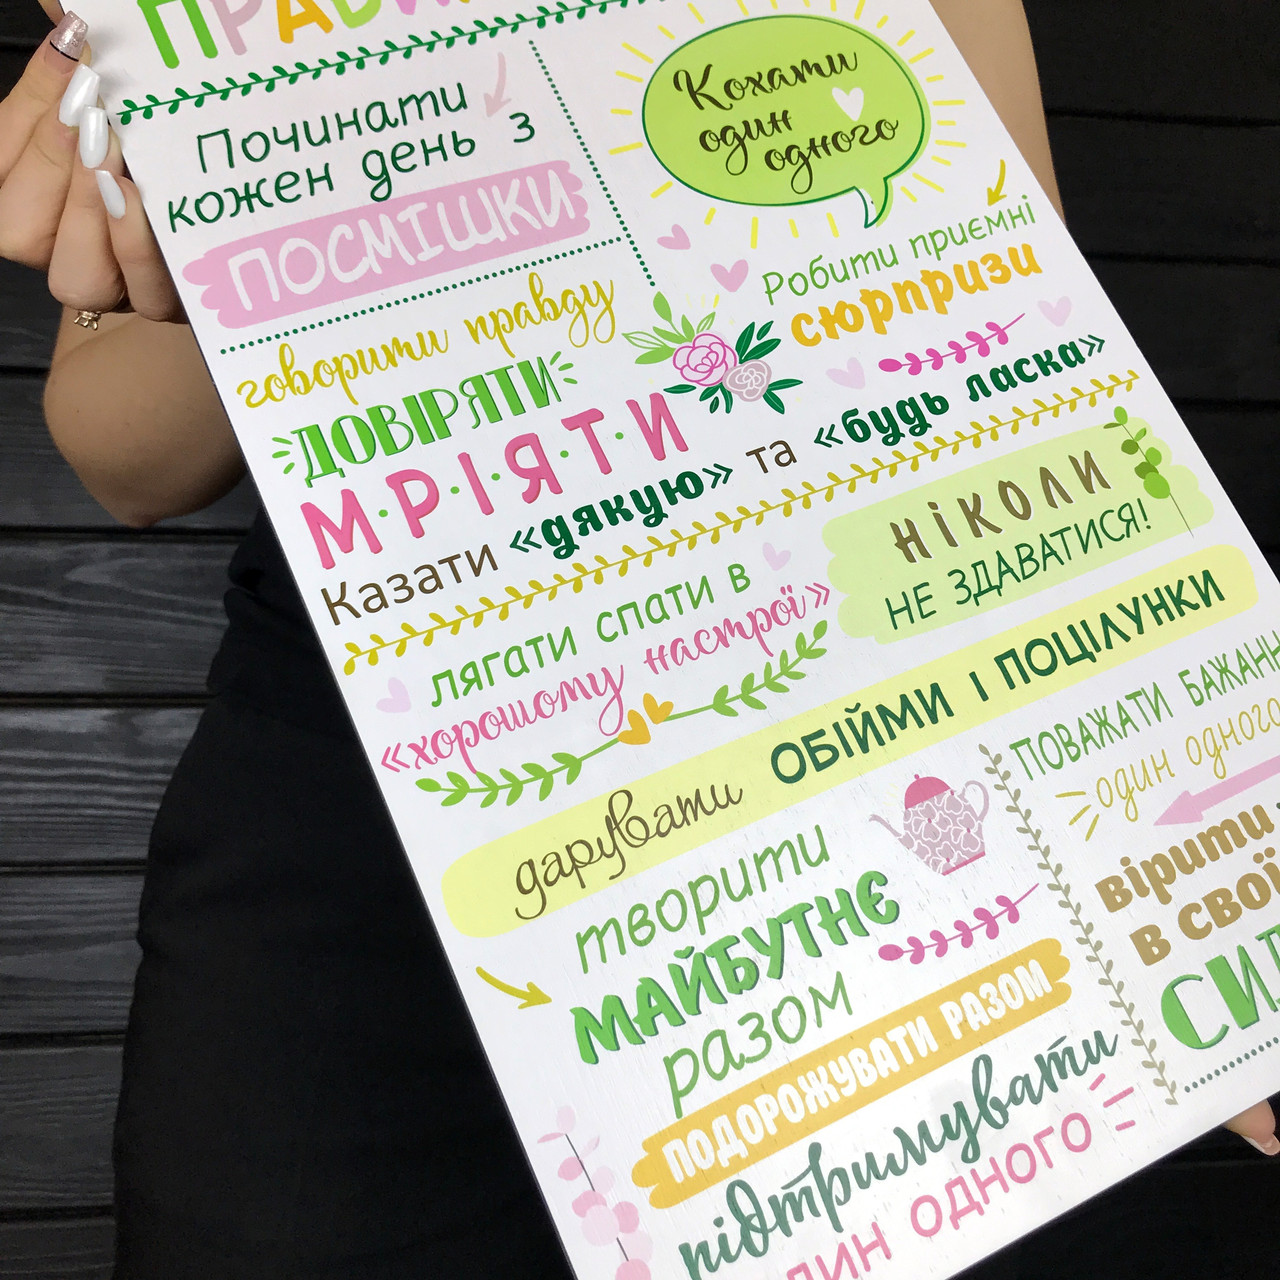 Починати
кожен день з
ПОСМІШКИ
Кохати
один
одного
Робити приємні
сюрпризи
говорити правду
ДОВІРЯТИ
М·Р·І·Я·Т·И
Казати «дякую» та «будь ласка»
лягати спати в
«хорошому настрої»
НІКОЛИ
НЕ ЗДАВАТИСЯ!
дарувати ОБІЙМИ І ПОЦІЛУНКИ
творити
МАЙБУТНЄ
разом
ПОДОРОЖУВАТИ РАЗОМ
підтримувати
ОДНОГО
ПОВАЖАТИ
один одного
вірити
в свої